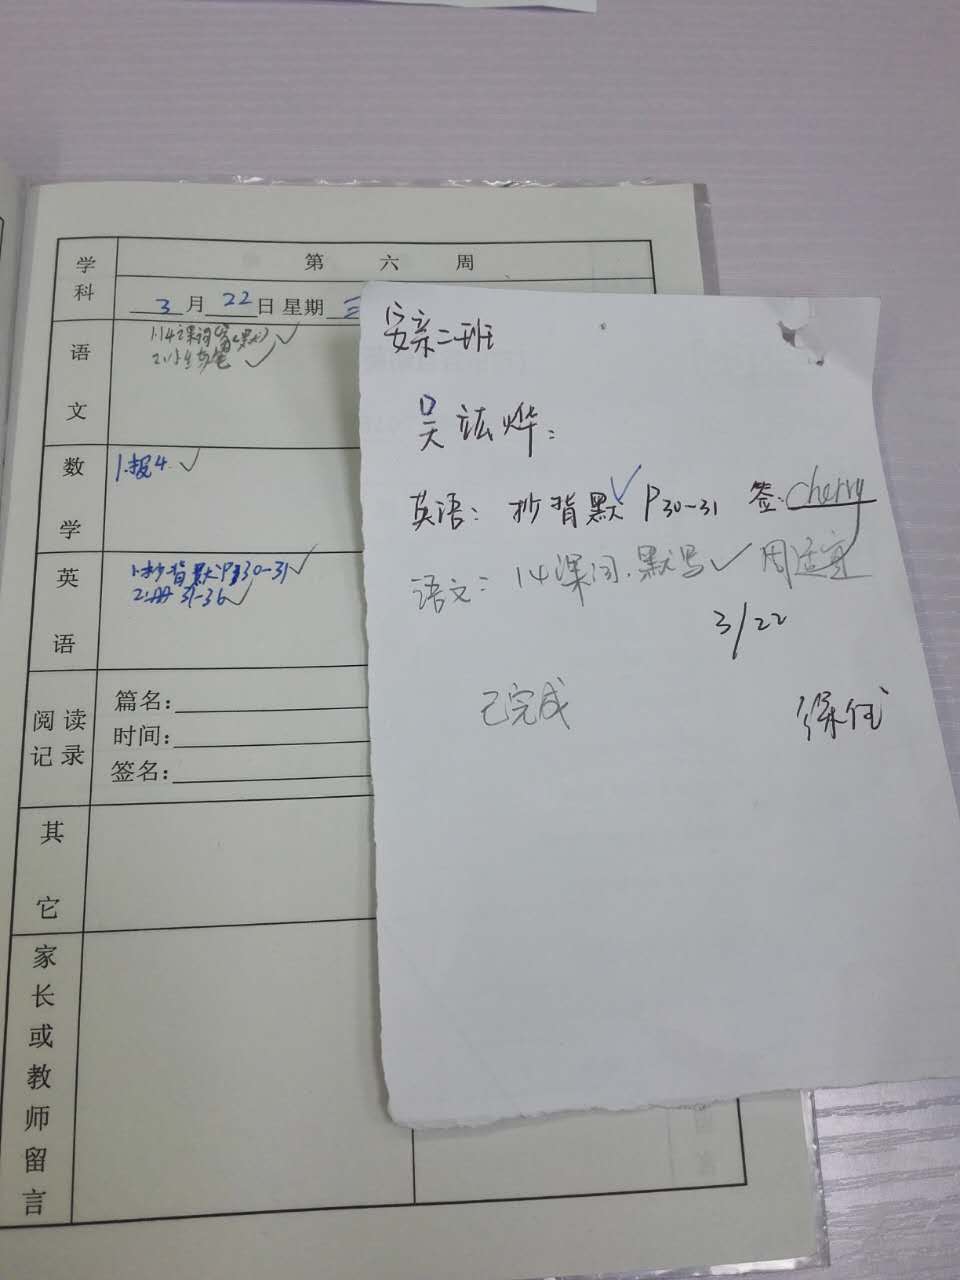 学科
第 六 周
3月22日 星期三
语文
1.14课词(, 默)
2.小
数学
1.报4
英语
1.抄背默P30-31
2.册 31-36
阅读记录
篇名:
时间:
签名:
其它
家长或教师留言
安亲二班
吴竑烨:
英语: 抄背默 P30-31 签: Cherry
语文: 14课词.默写
3/22
已完成